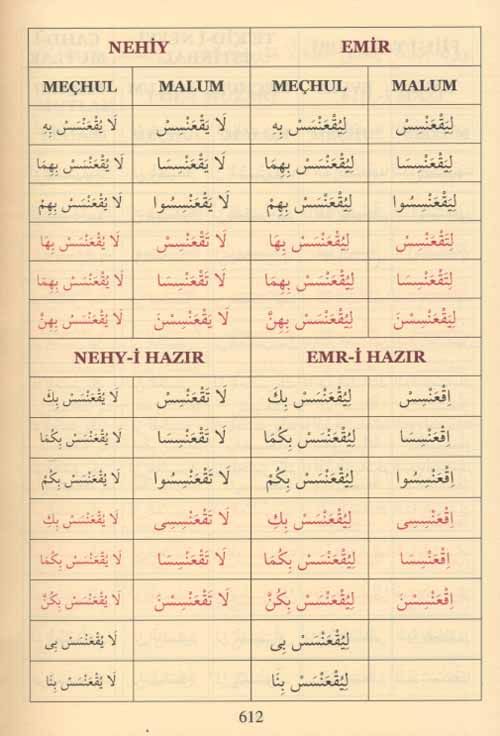 NEHİY EMİR
MEÇHUL MALUM MEÇHUL MALUM
لِيَقْعَنْسِسْ لِيُقْعَنْسَسْ بِهِ لَا يَقْعَنْسِسْ لَا يُقْعَنْسَسْ بِهِ
لِيَقْعَنْسِسَا لِيُقْعَنْسَسْ بِهِمَا لَا يَقْعَنْسِسَا لَا يُقْعَنْسَسْ بِهِمَا
لِيَقْعَنْسِسُوا لِيُقْعَنْسَسْ بِهِمْ لَا يَقْعَنْسِسُوا لَا يُقْعَنْسَسْ بِهِمْ
لِتَقْعَنْسِسْ لِيُقْعَنْسَسْ بِهَا لَا تَقْعَنْسِسْ لَا يُقْعَنْسَسْ بِهَا
لِتَقْعَنْسِسَا لِيُقْعَنْسَسْ بِهِمَا لَا تَقْعَنْسِسَا لَا يُقْعَنْسَسْ بِهِمَا
لِيَقْعَنْسِسْنَ لِيُقْعَنْسَسْ بِهِنَّ لَا يَقْعَنْسِسْنَ لَا يُقْعَنْسَسْ بِهِنَّ
NEHY-İ HAZIR EMR-İ HAZIR
اِقْعَنْسِسْ لِيُقْعَنْسَسْ بِكَ لَا تَقْعَنْسِسْ لَا يُقْعَنْسَسْ بِكَ
اِقْعَنْسِسَا لِيُقْعَنْسَسْ بِكُمَا لَا تَقْعَنْسِسَا لَا يُقْعَنْسَسْ بِكُمَا
اِقْعَنْسِسُوا لِيُقْعَنْسَسْ بِكُمْ لَا تَقْعَنْسِسُوا لَا يُقْعَنْسَسْ بِكُمْ
اِقْعَنْسِسِى لِيُقْعَنْسَسْ بِكِ لَا تَقْعَنْسِسِى لَا يُقْعَنْسَسْ بِكِ
اِقْعَنْسِسَا لِيُقْعَنْسَسْ بِكُمَا لَا تَقْعَنْسِسَا لَا يُقْعَنْسَسْ بِكُمَا
اِقْعَنْسِسْنَ لِيُقْعَنْسَسْ بِكُنَّ لَا تَقْعَنْسِسْنَ لَا يُقْعَنْسَسْ بِكُنَّ
لِيُقْعَنْسَسْ بِى لَا يُقْعَنْسَسْ بِى
لِيُقْعَنْسَسْ بِنَا لَا يُقْعَنْسَسْ بِنَا
612